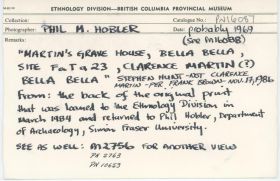 ETHNOLOGY DIVISION—BRITISH COLUMBIA PROVINCIAL MUSEUM
Collection: Catalogue No.: PN16087
Photographer: PHIL M. HOBLER Date: probably 1969
Remarks: (See PN16088)
"MARTIN'S GRAVE HOUSE, BELLA BELLA,
SITE FaTa 23, CLARENCE MARTIN (?)
BELLA BELLA" STEPHEN HUNT - NOT CLARENCE
MARTIN - PER. FRANK BROWN - NOV. 17, 1986
From: the back of the original print
that was loaned to the Ethnology Division in
March 1984 and returned to Phil Hobler, Department
of Archaeology, Simon Fraser University.
SEE AS WELL: AN2756 FOR ANOTHER VIEW
PN 2763
PN 10659